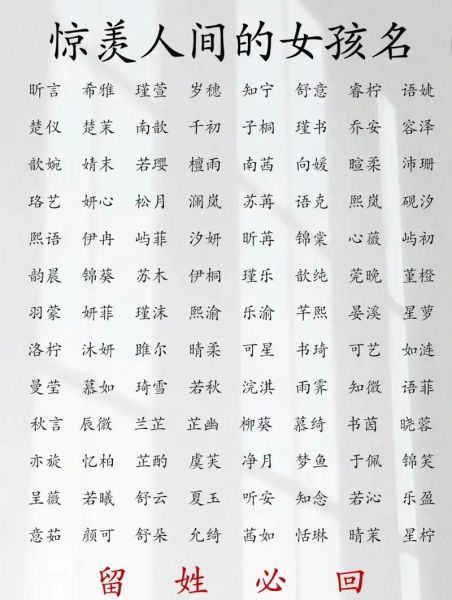 惊羡人间的女孩名
昕言 希雅 瑾萱 岁穗 知宁 舒意 睿柠 语婕
楚仪 楚茉 南歆 千初 子桐 瑾书 乔安 容泽
歆婉 婧末 若璎 檀雨 南茜 向媛 暄柔 沛珊
珞艺 妍心 松月 澜岚 苏苒 语克 熙岚 砚汐
熙语 伊冉 屿菲 汐妍 昕苒 锦棠 心薇 屿初
韵晨 锦葵 苏木 伊桐 瑾乐 歆纯 莞晚 堇橙
羽蒙 妍菲 瑾沫 熙渝 乐渝 芊熙 晏溪 星萝
洛柠 沐妍 雎尔 晴柔 可星 书琦 可艺 如涟
曼莹 慕如 琦雪 若秋 浣淇 雨霁 知微 语菲
秋言 辰微 兰芷 芷幽 柳葵 慕绮 书茵 晓蓉
亦旋 忆柏 芷酌 虞芙 净月 梦鱼 于佩 锦笑
呈薇 若曦 舒云 夏玉 听安 知念 若沁 乐盈
意茹 颜可 舒朵 允绮 茜如 恬琳 晴茉 星柠
留姓必回